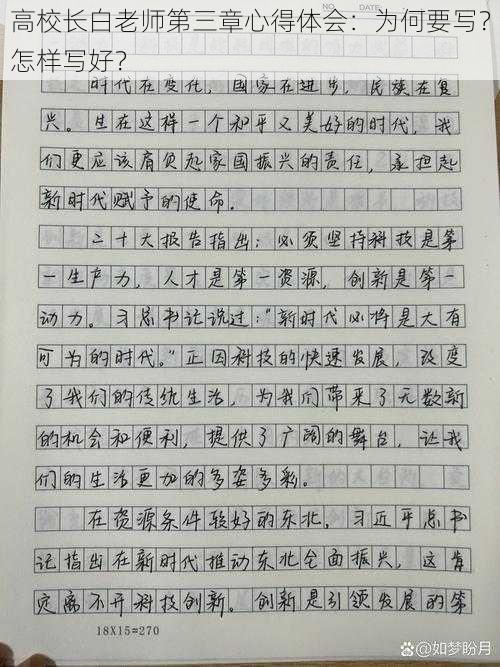 高校长白老师第三章心得体会：为何要写？
怎样写好？
时代在变化，国家在进步，民族在复
兴。生在这样一个和平又美好的时代，我
们更应该肩负起家国振兴的责任，承担起
新时代赋予的使命．
二十大报告指出：必须坚持科技是第
一生产力，人才是第一资源，创新是第一
动力。习总书记说过：“新时代必将是大有
可为的时代。”正因科技的快速发展，改变
了我们的传统生活，为我们带来了无数新
的机会和便利，提供了广阔的舞台，让我
们的生活更加的多姿多彩。
在资源条件较好的东北，习近平总书
记指出在新时代推动东北全面振兴，这肯
定离不开科技创新。创新是引领发展的第
18X15=270
@如梦盼月